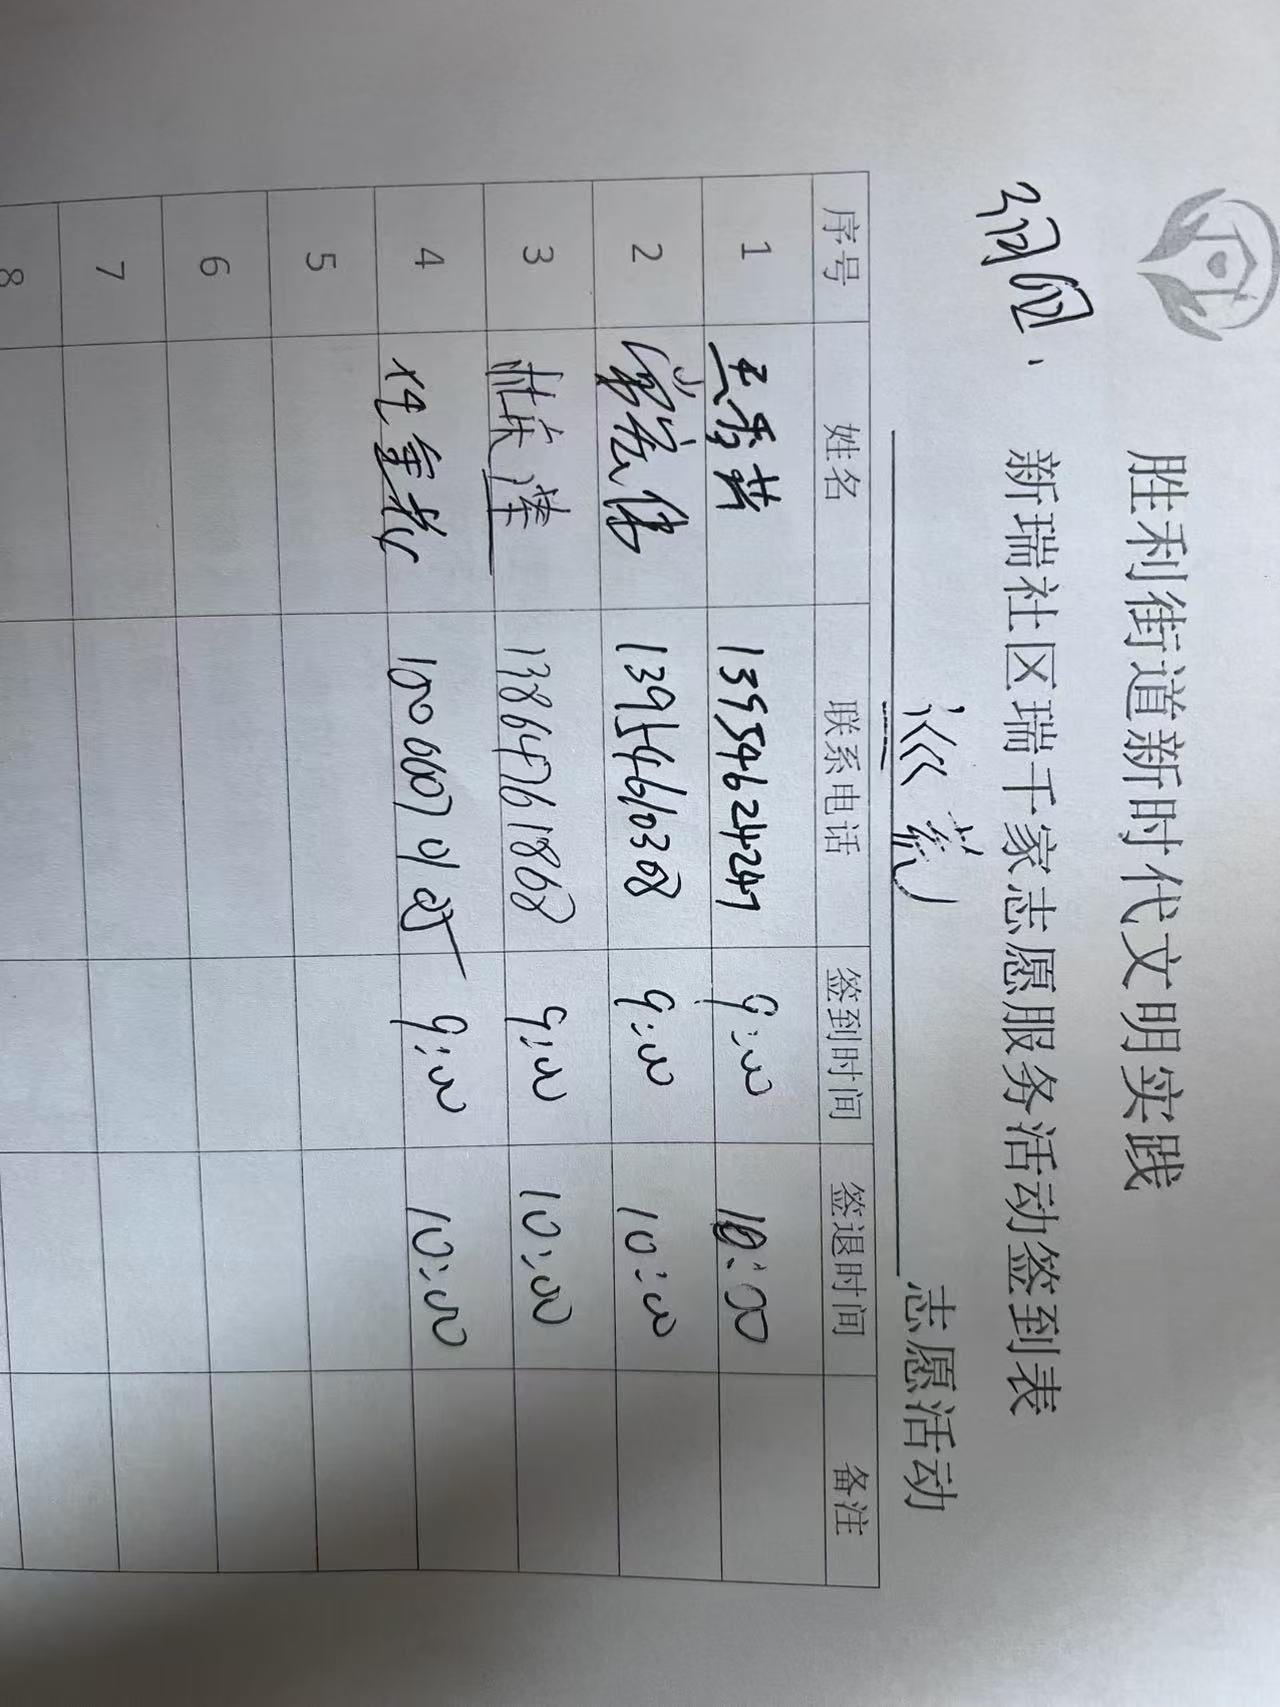 胜利街道新时代文明实践
新瑞社区瑞千家志愿服务活动签到表
巡苑 志愿活动
序号 姓名 联系电话 签到时间 签退时间 备注
1 王秀芳 13954624247 9:00 10:00
2 宏伟 13954610368 9:00 10:00
3 杜庆 13864761868 9:00 10:00
4 9:00 10:00
5
6
7
8